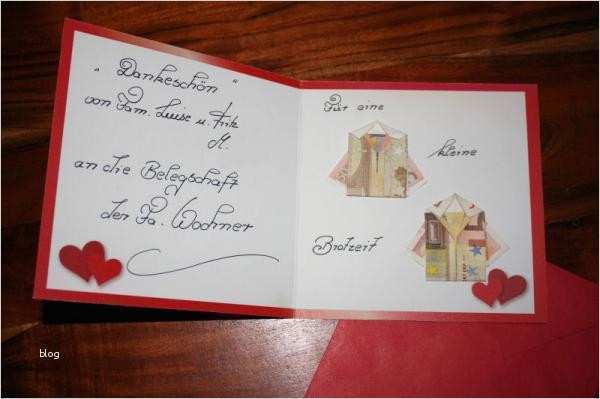 „ Dankeschön "
von Fam. Luise u. Fritz
M.
an die Belegschaft
der Fa. Wochner
Für eine
kleine
Brotzeit
blog